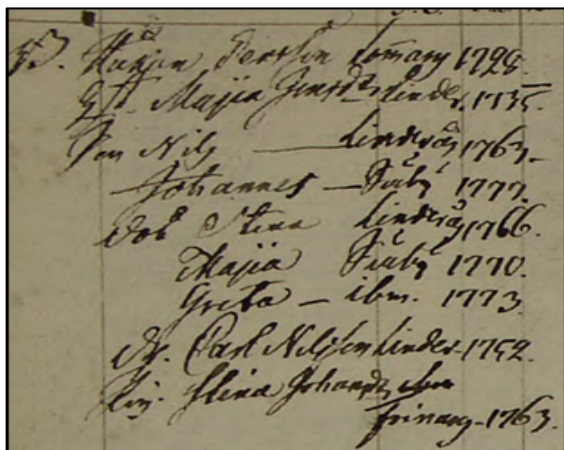 Håkan Persson Komary 1728.
Maja Linder. 1735.
Son Nils Linderås 1763.
Johannes — Säby 1777.
dot Stina Linderås 1766.
Maja Säby 1770.
Greta — ibm. 1773.
dr. Carl Nilsson Linder. 1752.
Pig. Stina Johansd
Frinary. 1763.